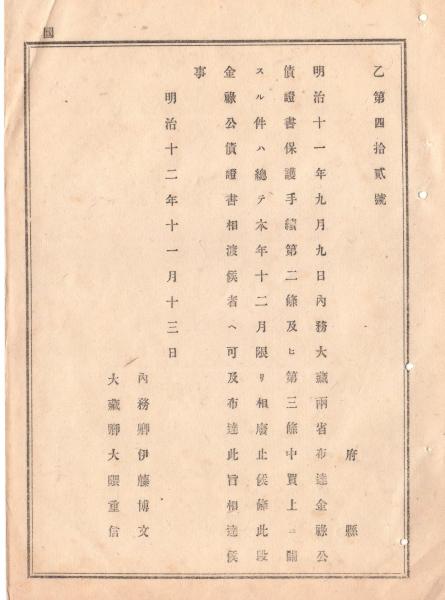 乙第四拾貳號
府縣
明治十一年九月九日內務大藏兩省布達金祿公
債證書保護手續第二條及ヒ第三條中買上ニ關
スル件ハ總テ本年十二月限リ相廢止候條此段
金祿公債證書相渡候者ヘ可及布達此旨相達候
事
明治十二年十一月十三日
內務卿伊藤博文
大藏卿大隈重信
國